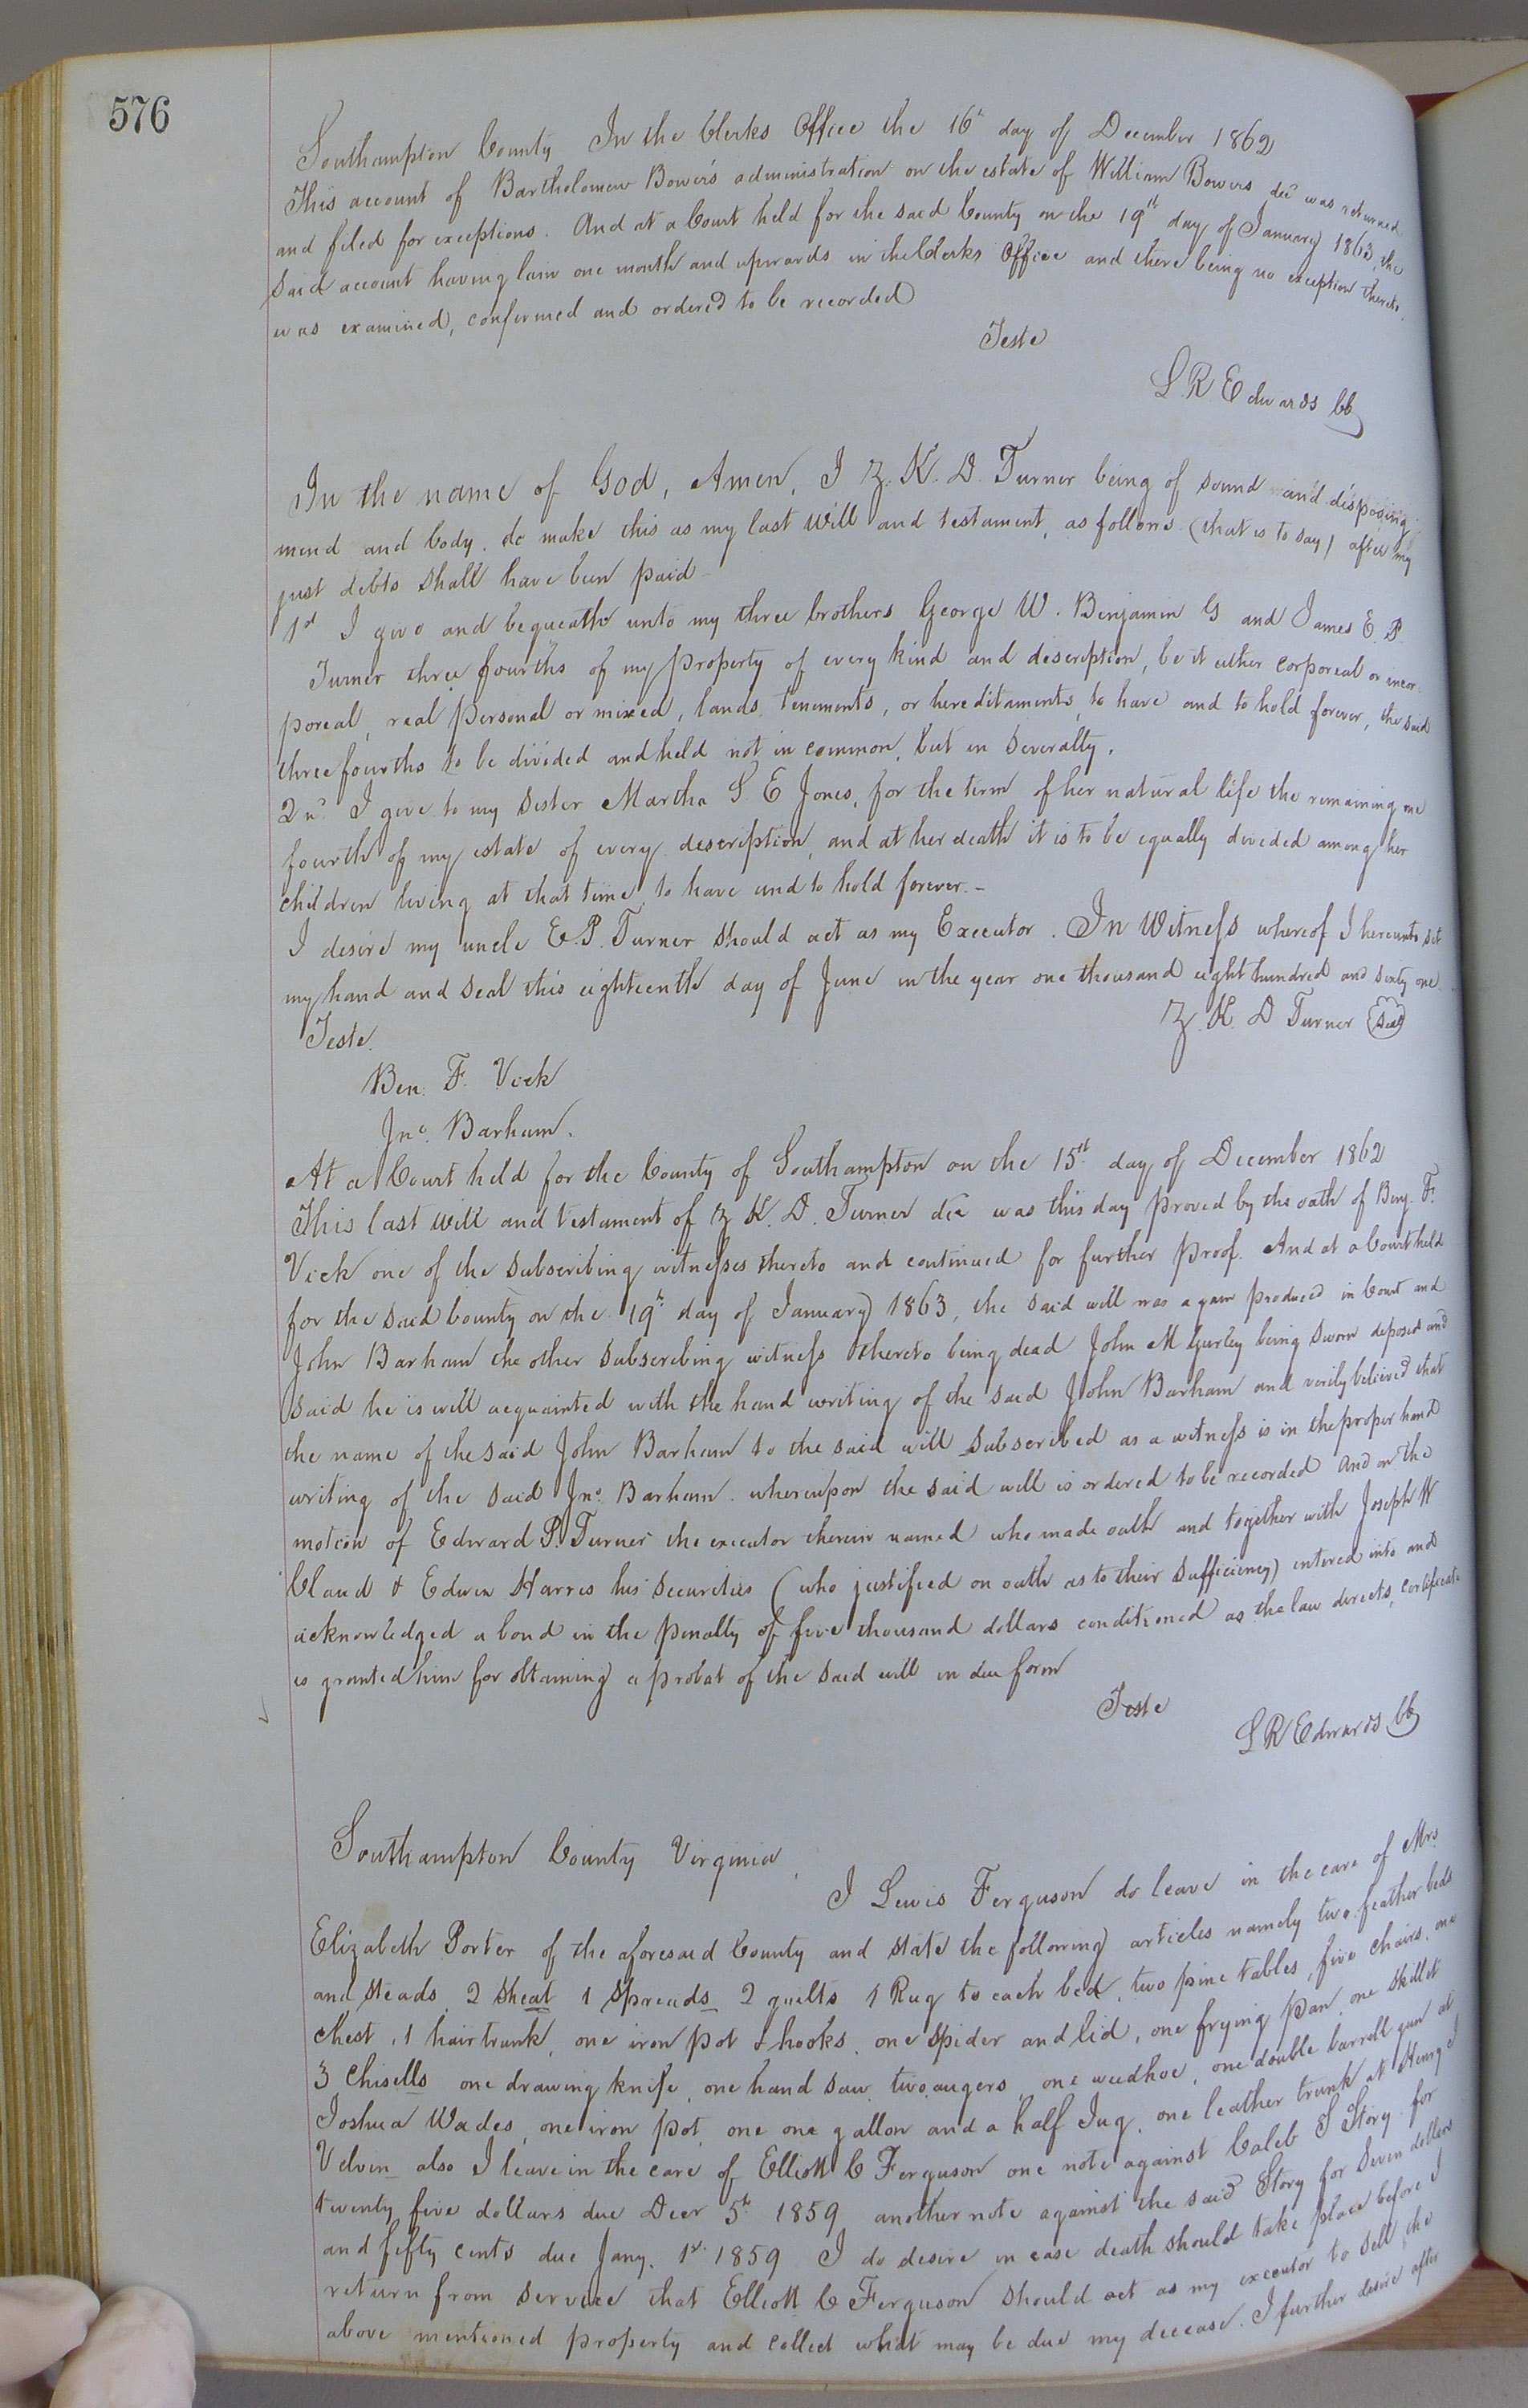 576
Southampton County In the Clerks Office the 16th day of December 1862
This account of Bartholomew Bowers administration on the estate of William Bowers decd was returned
and filed for exceptions. And at a Court held for the said County on the 19th day of January 1863, the
said account having lain one month and upwards in the Clerks Office and there being no exception thereto.
was examined, confirmed and ordered to be recorded
Teste
L. R Edwards CC
In the name of God, Amen, I Z. K. D. Turner being of sound and disposing
mind and body. do make this as my last will and testament, as follows (that is to say) after my
just debts shall have been paid -
1st I give and bequeath unto my three brothers George W. Benjamin G and James E. P.
Turner three fourths of my property of every kind and description, be it either corporeal or incor-
poreal, real personal or mixed, lands, tenements, or hereditaments, to have and to hold forever, the said
three fourths to be divided and held not in common, but in severalty.
2nd I give to my sister Martha S. E Jones, for the term of her natural life the remaining one
fourth of my estate of every description, and at her death it is to be equally divided among her
children living at that time, to have and to hold forever. -
I desire my uncle E. P. Turner should act as my Executor. In Witness whereof I hereunto set
my hand and seal this eighteenth day of June in the year one thousand eight hundred and sixty one
Z. K. D Turner (Seal)
Teste.
Ben. F. Vick
Jno. Barham.
At a Court held for the County of Southampton on the 15th day of December 1862
This last will and testament of Z K. D. Turner decd was this day proved by the oath of Benj. F.
Vick one of the subscribing witnesses thereto and continued for further proof. And at a Court held
for the said County on the 19th day of January 1863, the said will was again produced in Court and
John Barham the other subscribing witness thereto being dead John M Gurley being sworn deposed and
said he is well acquainted with the hand writing of the said John Barham and verily believed that
the name of the said John Barham to the said will subscribed as a witness is in the proper hand
writing of the said Jno. Barham. whereupon the said will is ordered to be recorded and on the
motion of Edward P. Turner the executor therein named who made oath and together with Joseph W
Claud & Edwin Harris his securities (who justified on oath as to their sufficiency) entered into and
acknowledged a bond in the penalty of five thousand dollars conditioned as the law directs, certificate
is granted him for obtaining a probat of the said will in due form
Teste
L R Edwards CC
Southampton County Virginia,
I Lewis Ferguson do leave in the care of Mrs
Elizabeth Porter of the aforesaid County and state the following articles namely two feather beds
and steads, 2 sheat 1 spreads 2 quilts 1 Rug to each bed, two pine tables, five chairs, one
chest, 1 hair trunk, one iron pot & hooks, one spider and lid, one frying pan, one skillet
3 chisells one drawing knife, one hand saw, two augers, one weedhoe, one double barrell gun at
Joshua Wades, one iron pot, one one gallon and a half Jug, one leather trunk at
Velvin also I leave in the care of Elliott C Ferguson one note against Caleb S Story for
twenty five dollars due Decr 5th 1859 another note against the said Story for seven dollars
and fifty cents due Jany. 1st 1859 I do desire in case death should take place before I
return from service that Elliott C Ferguson should act as my executor to sell the
above mentioned property and collect what may be due my decease. I further desire after